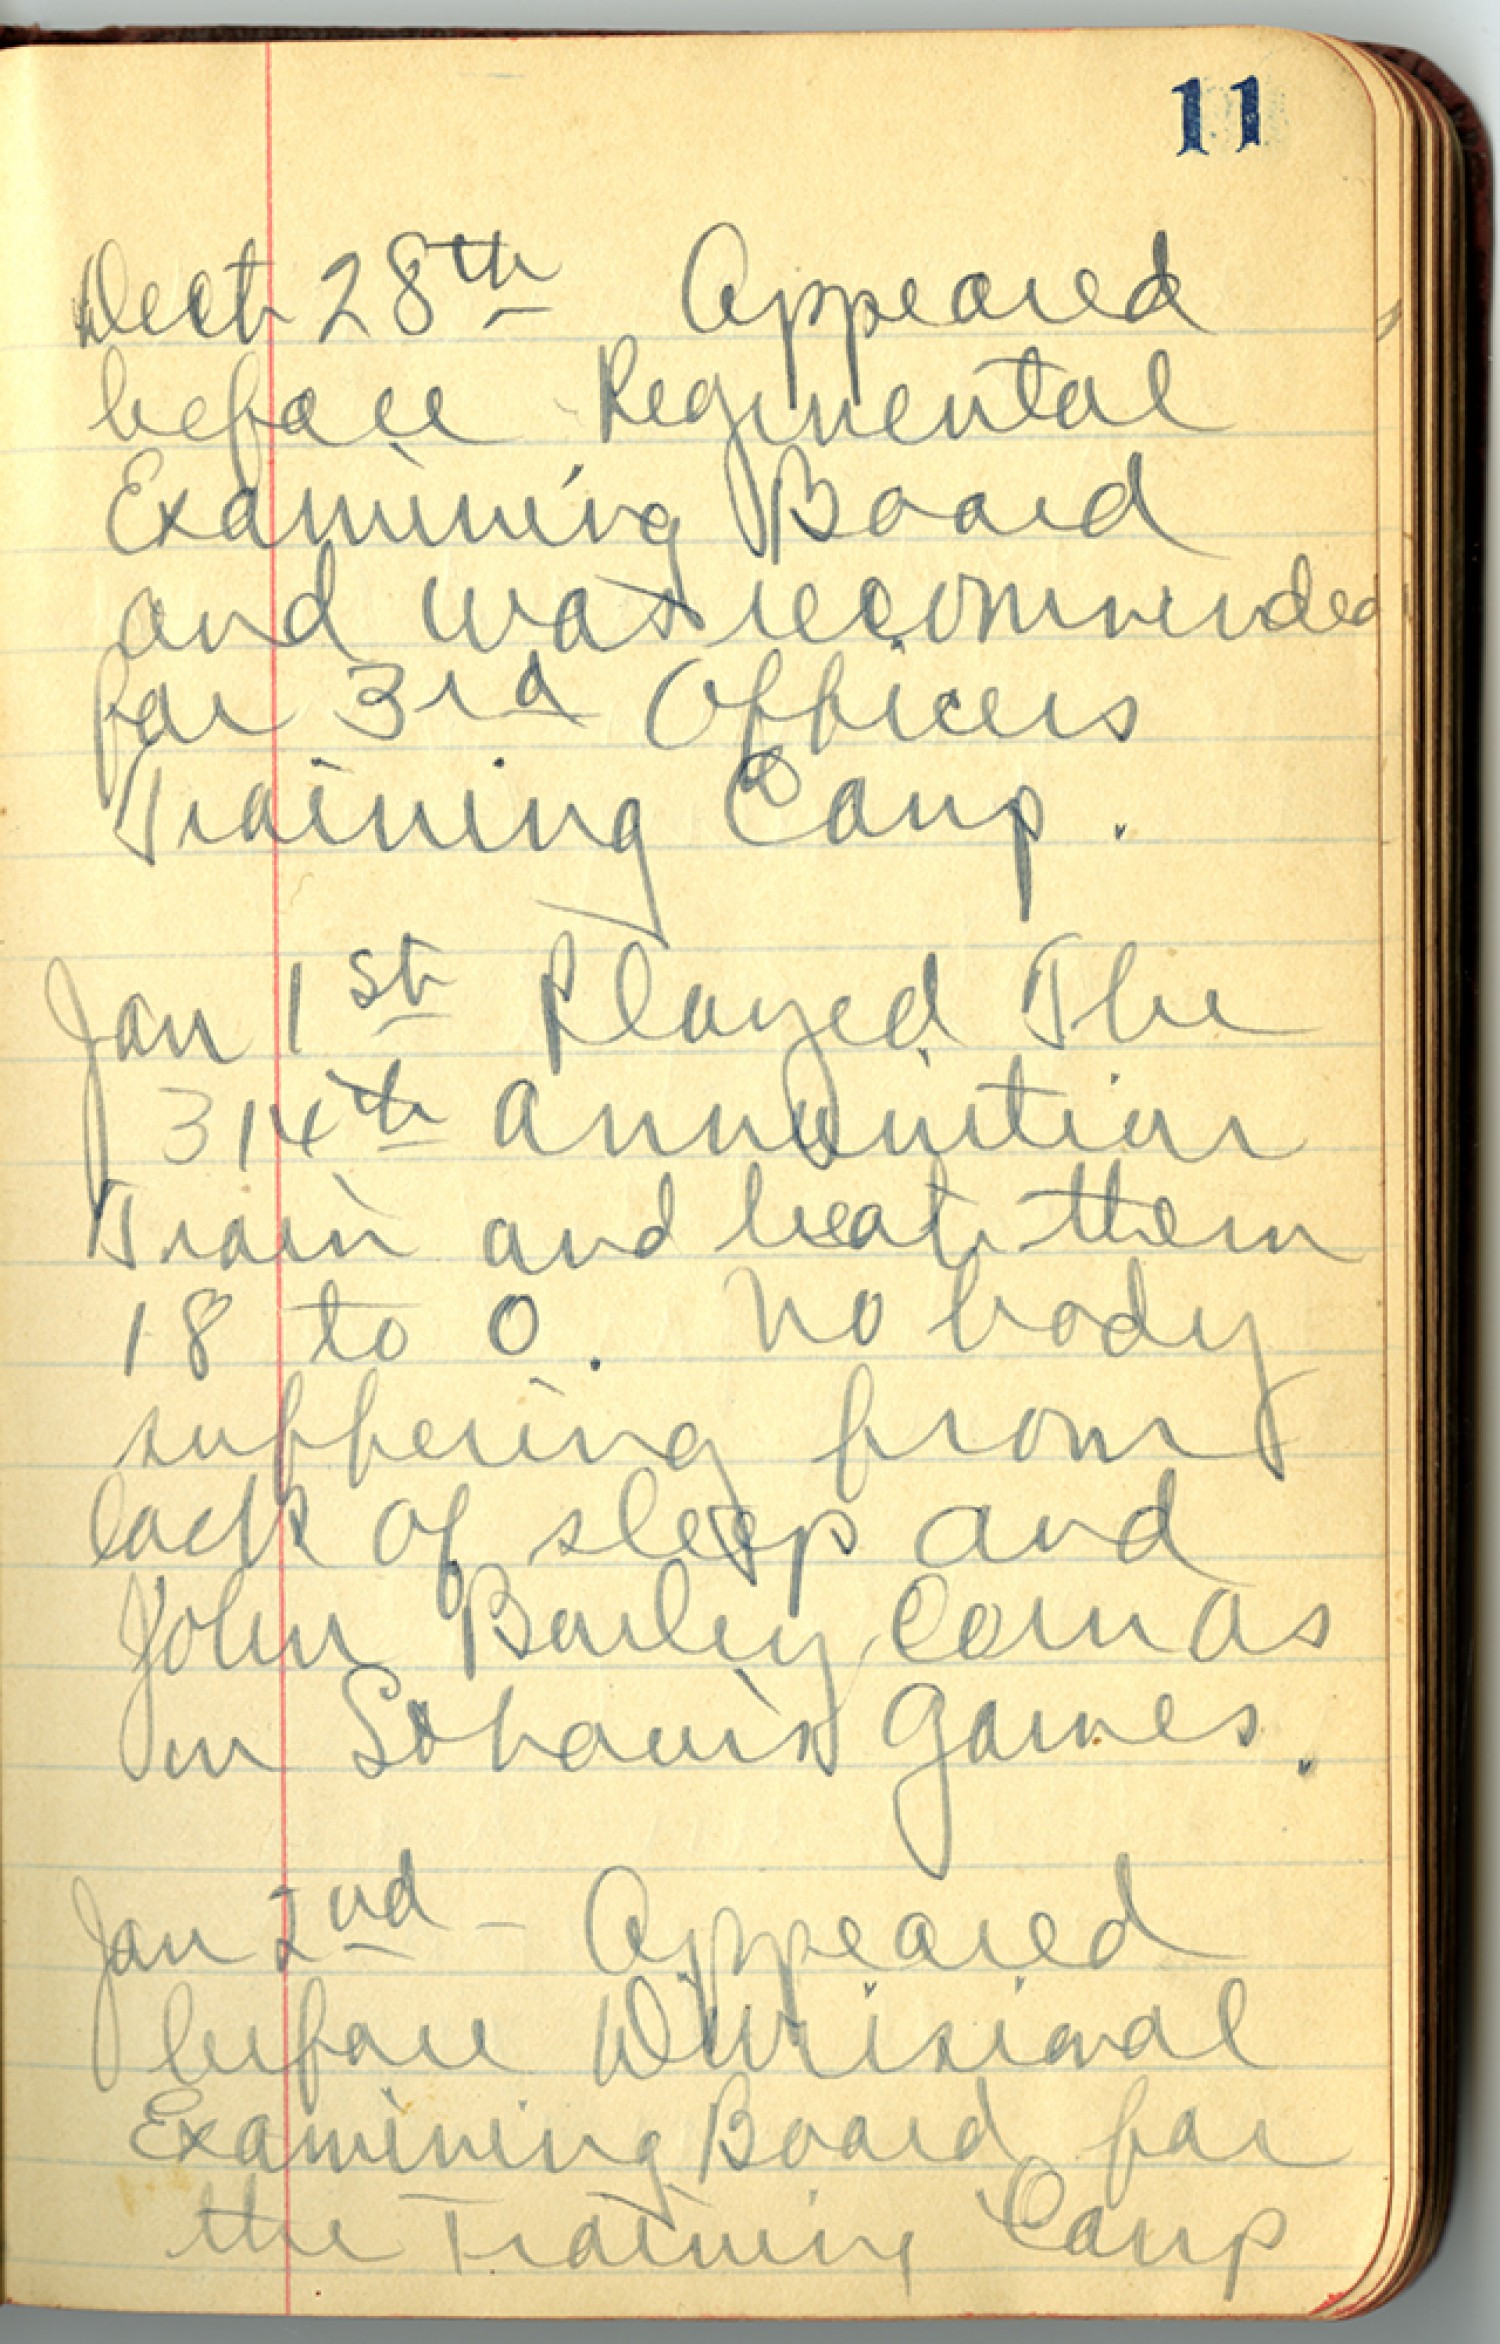 11
Dect 28th Appeared
before Regimental
Examining Board
and was recommended
for 3rd Officers
Training Camp.
Jan 1st Played The
314th Ammunition
Train and beat them
18 to 0. No body
suffering from
lack of sleep and
John Barley Corn as
in games.
Jan 2nd - Appeared
before Divisional
Examining Board for
the Training Camp